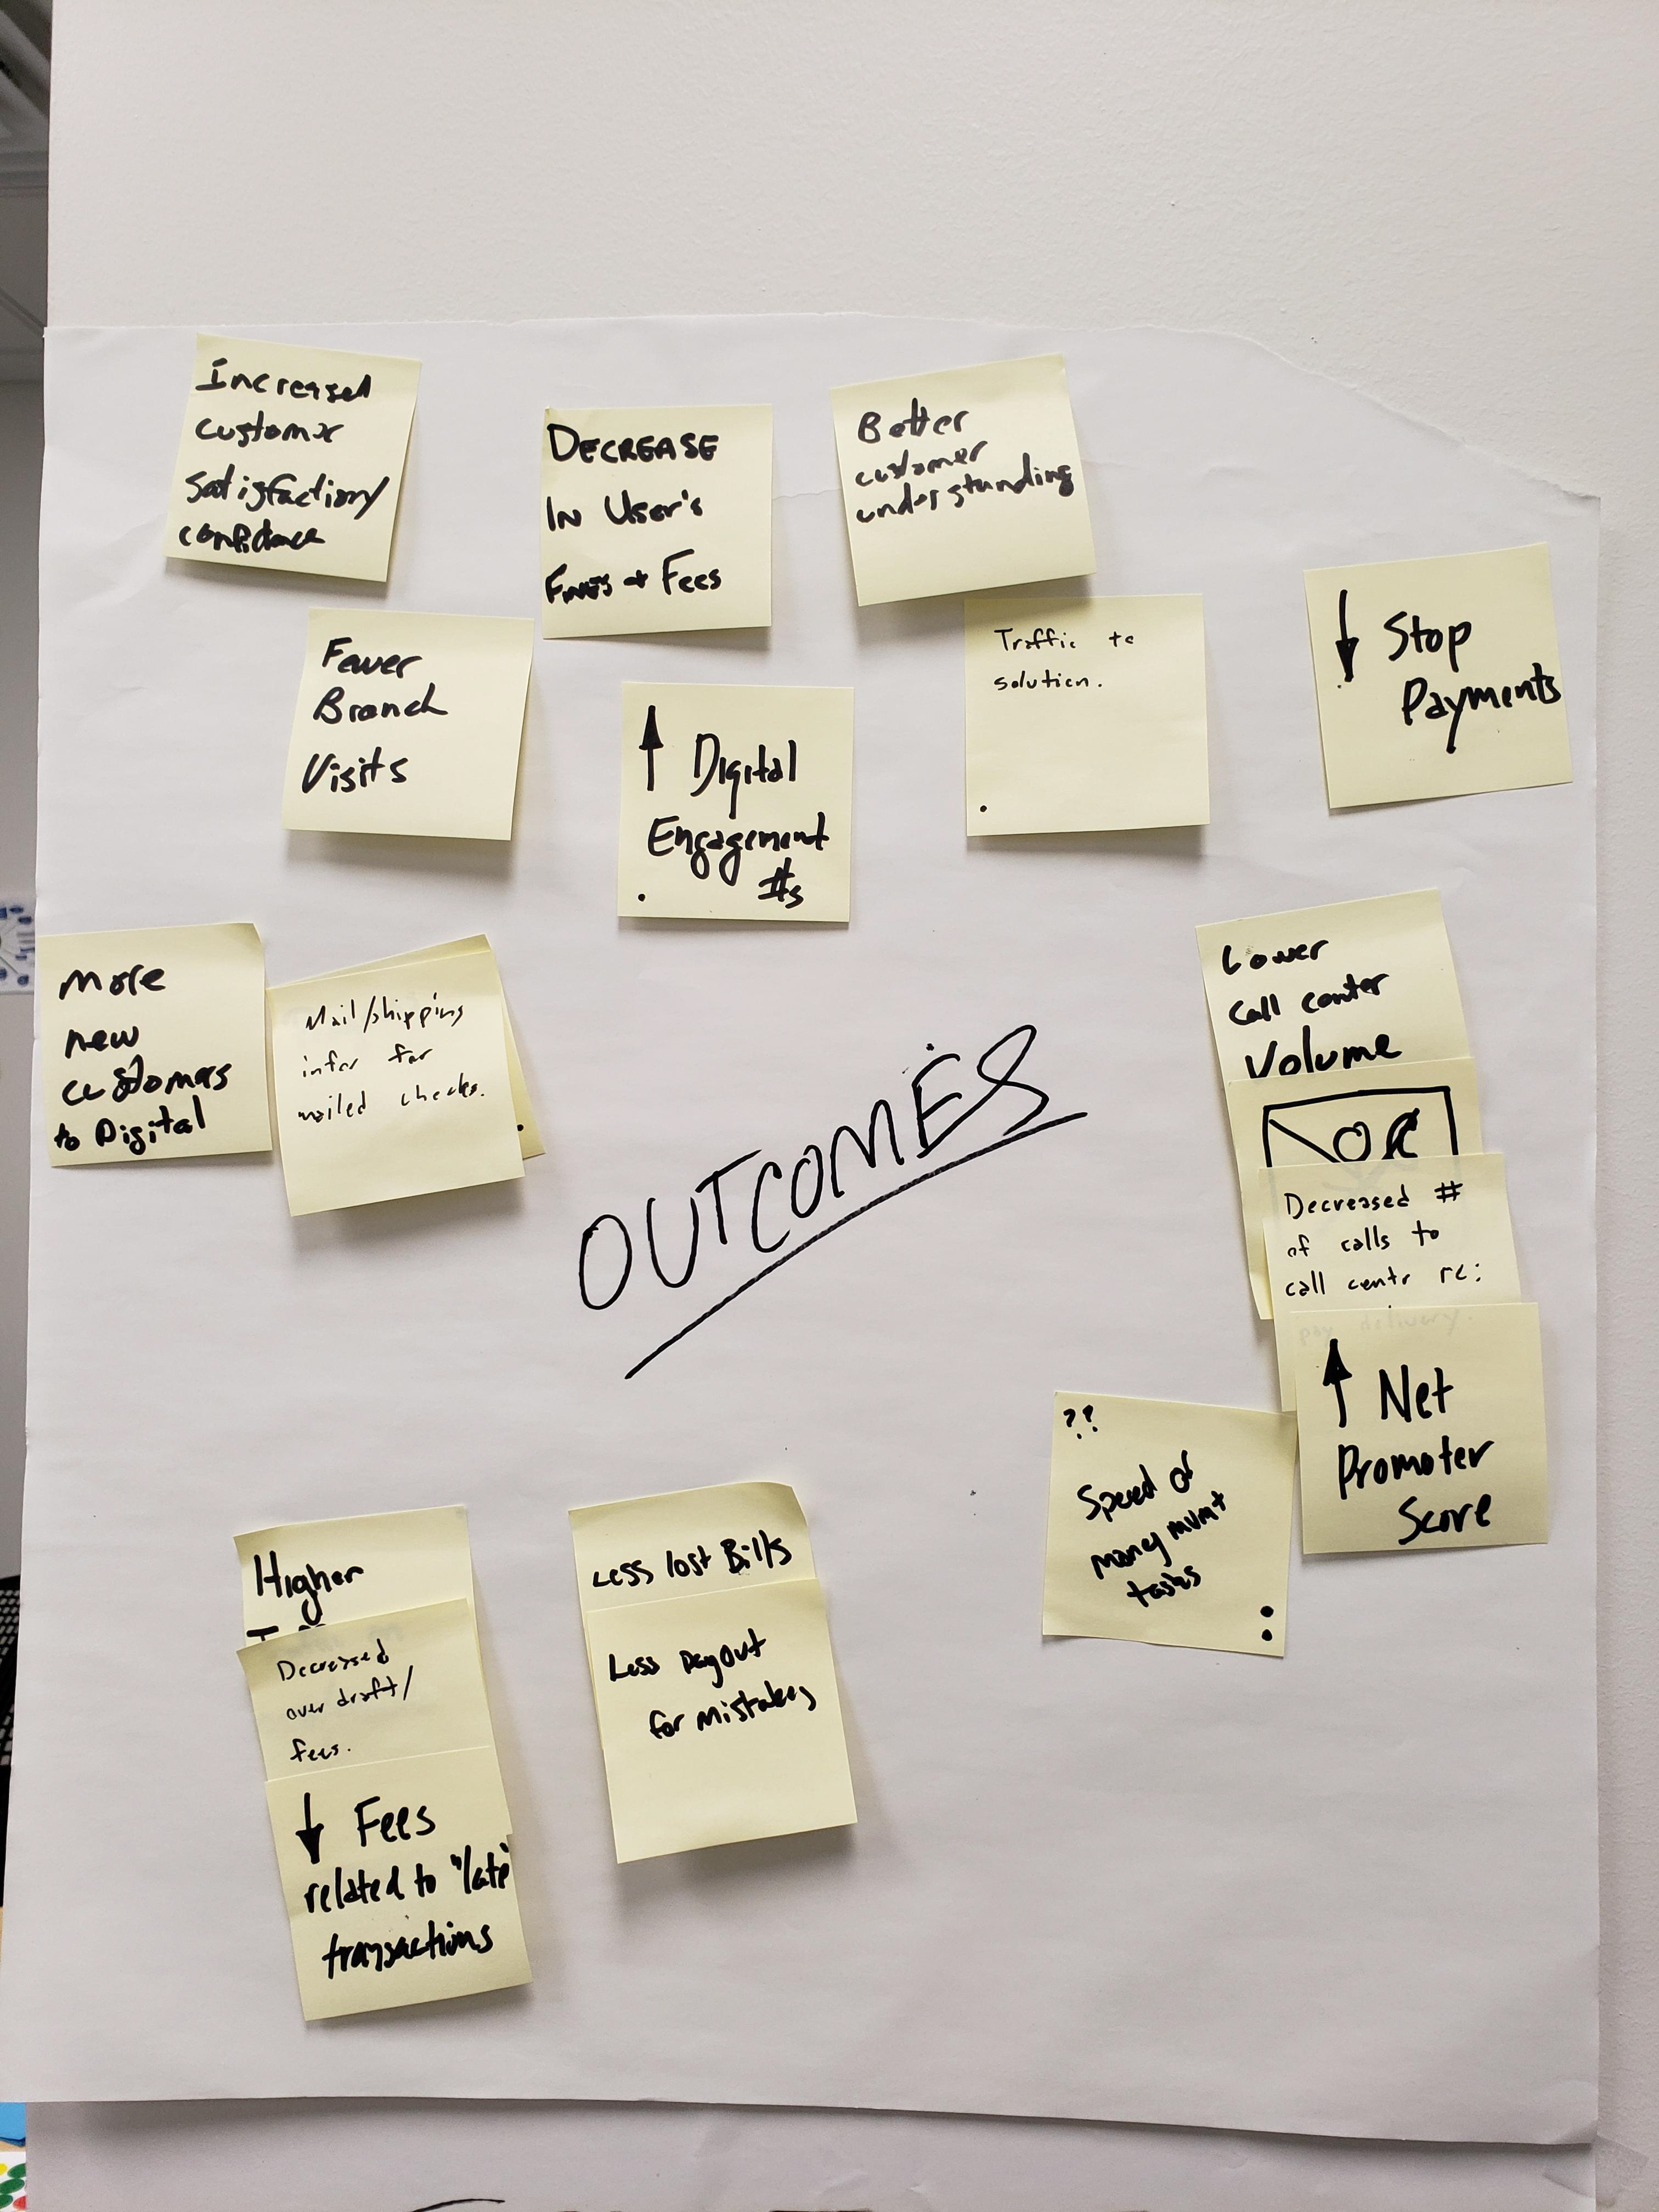 Increased
customer
satisfaction/
confidence
DECREASE
IN USER'S
FINES & FEES
Better
customer
understanding
Fewer
Branch
Visits
↑ Digital
Engagement
#s
Traffic to
solution.
↓ Stop
Payments
More
new
customers
to Digital
Mail/shipping
infor for
mailed checks.
OUTCOMES
Lower
Call center
Volume
Decreased #
of calls to
call centr re:
pay delivery.
↑ Net
Promoter
Score
??
Speed of
money mvmt
tasks
Higher
Decreased
overdraft/
fees.
↓ Fees
related to "late"
transactions
Less lost Bills
Less payout
for mistakes